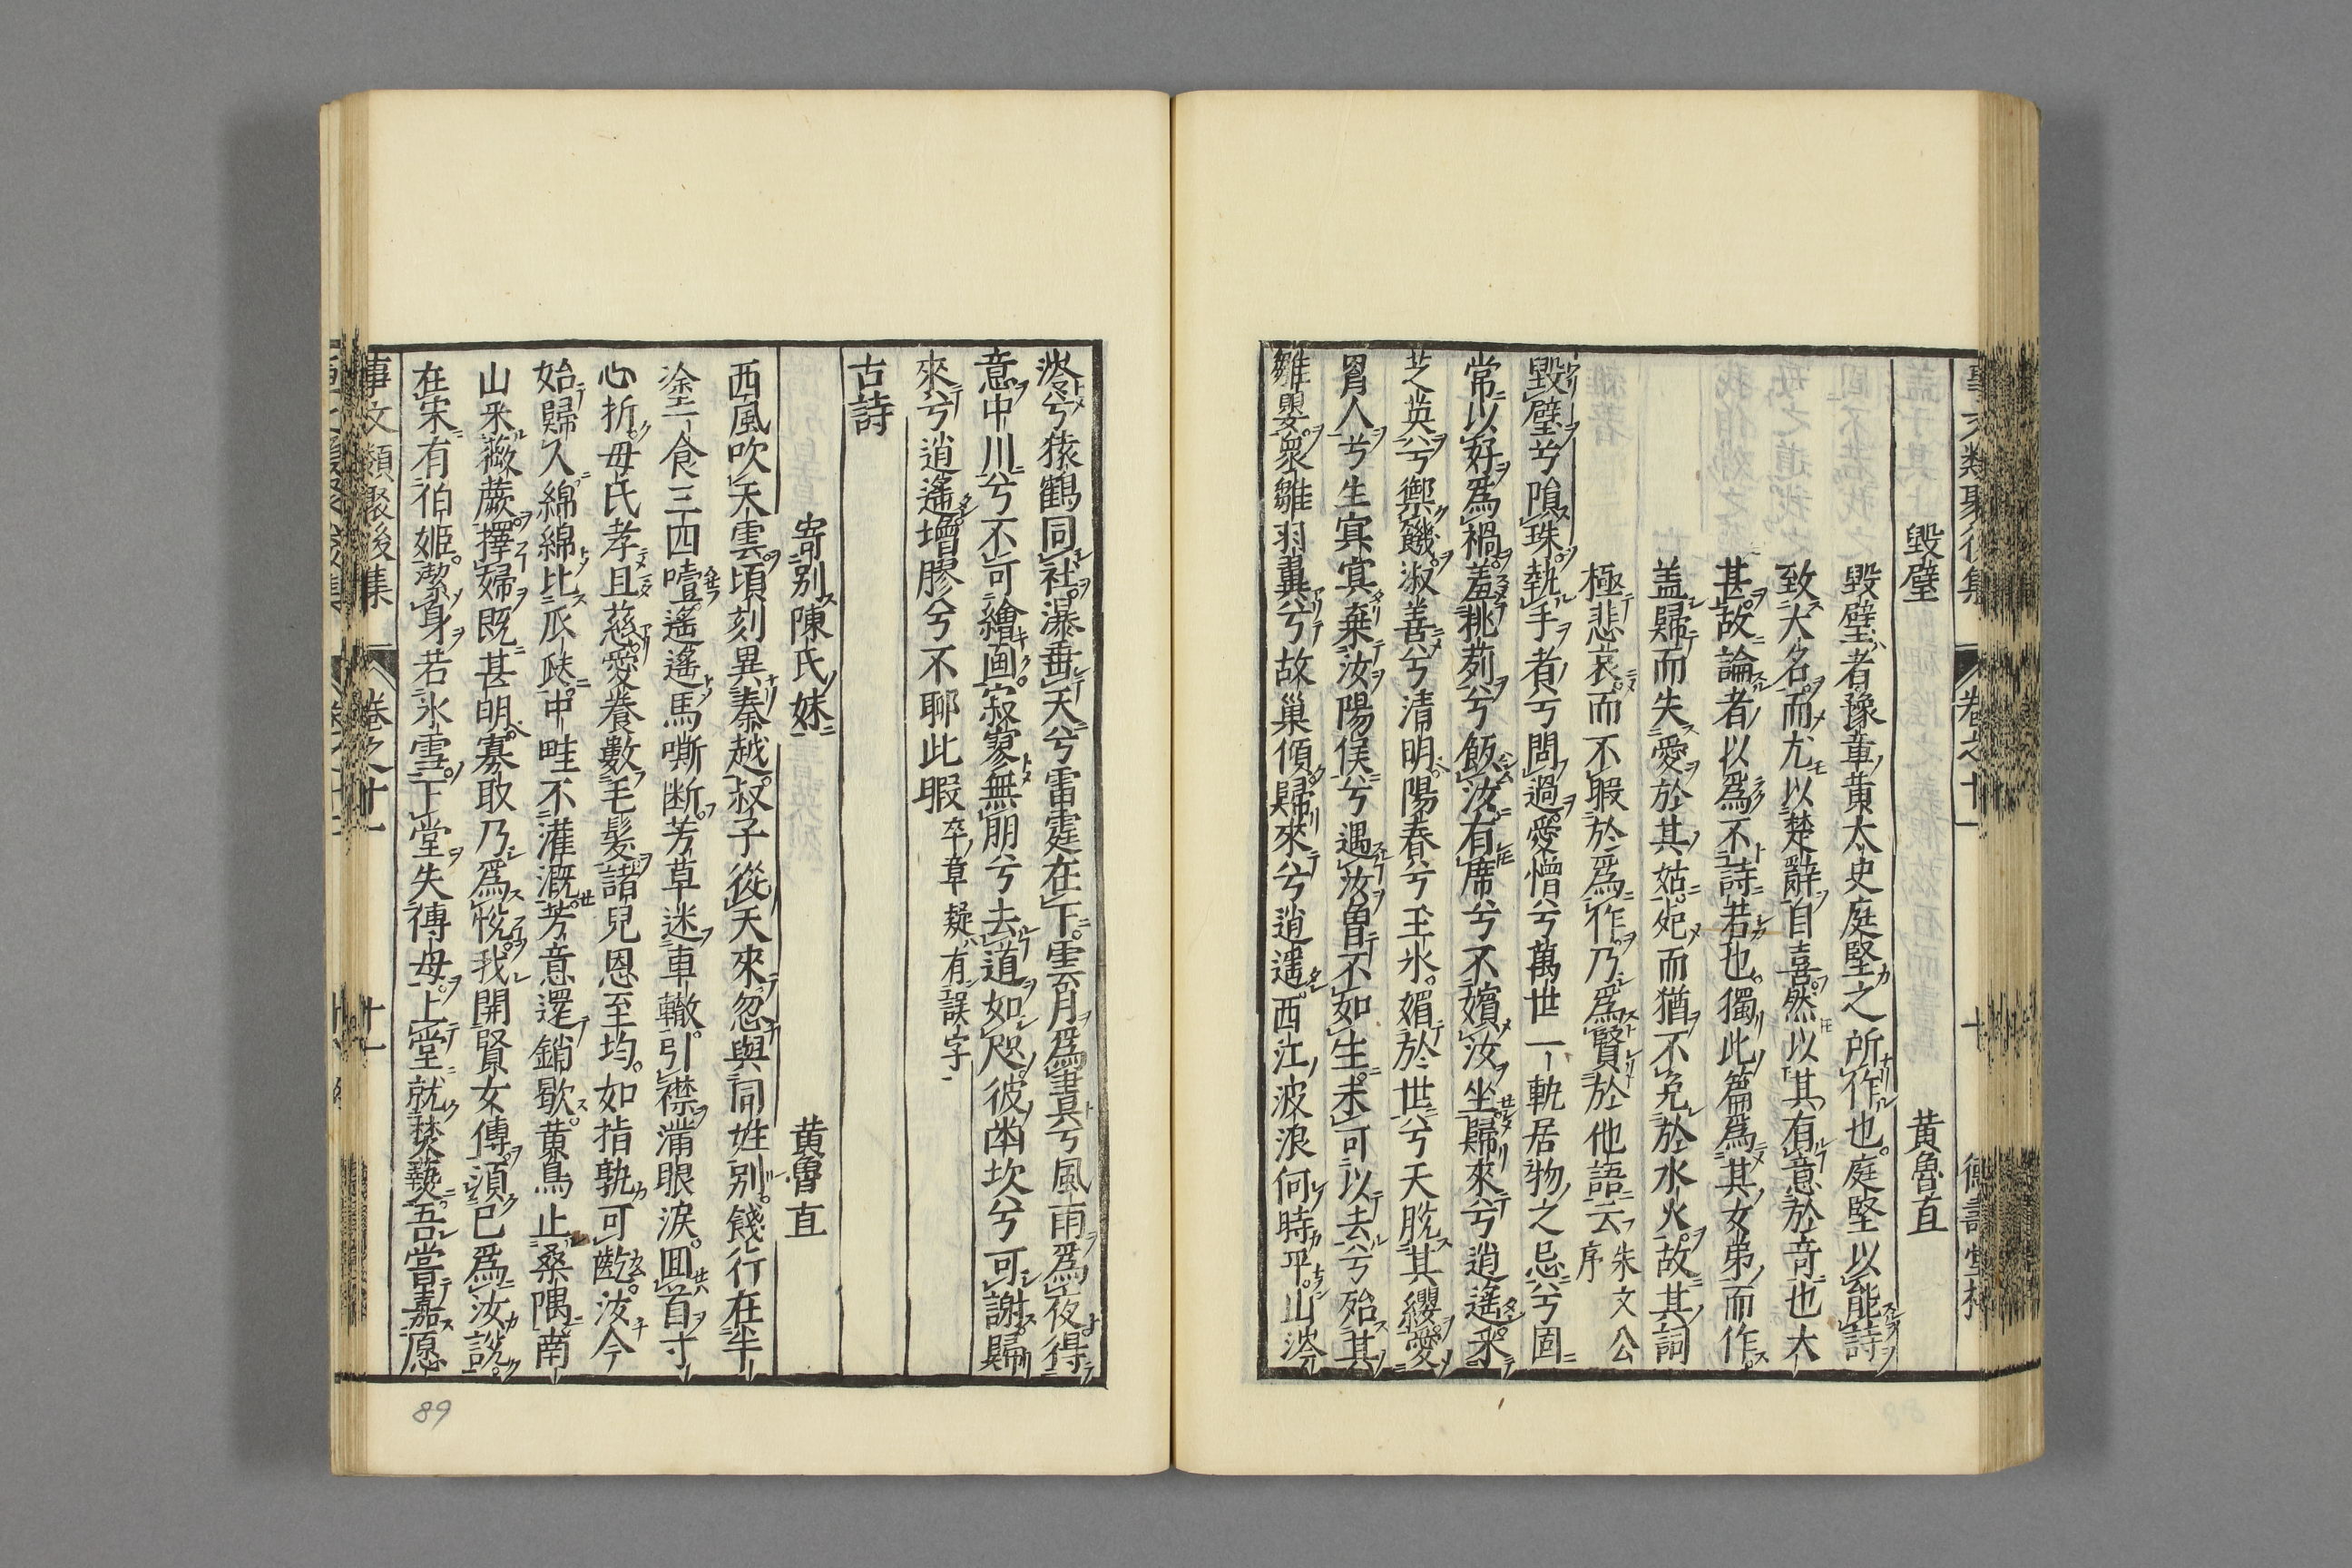 事文類聚後集 卷之十一 十 德壽堂梓
毀璧 黄魯直
毀璧者豫章黄太史庭堅之所作也庭堅以能詩
致大名而尤以楚辭自喜然以其有意於奇也太
甚故論者以爲不詩若也獨此篇爲其女弟而作
盖歸而失愛於其姑死而猶不免於水火故其詞
極悲哀而不暇於爲作乃爲賢於他語云 朱文公序
毀璧兮隕珠執手者兮問過愛憎兮萬世一軌居物之忌兮固
常以好爲禍羞桃茢兮飯汝有席兮不嬪汝坐歸來兮逍遙采
芝英兮禦饑淑善兮清明陽春兮玉氷媚於世兮天脱其纓愛
胃人兮生冥冥棄汝陽侯兮遇汝曽不如生未可以去兮殆其
雛嬰衆雛羽翼兮故巢傾歸來兮逍遥西江波浪何時平山涔
涔兮猿鶴同社瀑垂天兮雷霆在下雲月爲晝兮風雨爲夜得
意中川兮不可繪画寂寥無朋兮去道如咫彼幽坎兮可謝歸
來兮逍遙増膠兮不聊此暇 卒章疑有誤字
古詩
寄别陳氏妹 黄魯直
西風吹天雲頃刻異秦越叔子從天來忽與同姓别餞行在半
塗一食三四噎遙遙馬嘶断芳草迷車轍引襟滿眼淚回首寸
心折母氏孝且慈愛養數毛髮諸兒恩至均如指孰可齕汝今
始歸人綿綿比瓜瓞中畦不灌漑芳意還銷歇黄鳥止桑隅南
山采薇蕨擇婦既甚明寡取乃爲悦我開賢女傳須已爲汝說
在宋有伯姬潔身若氷雪下堂失傅母上堂就焚爇吾嘗嘉愿
事文類聚後集 卷之十一 十一
89